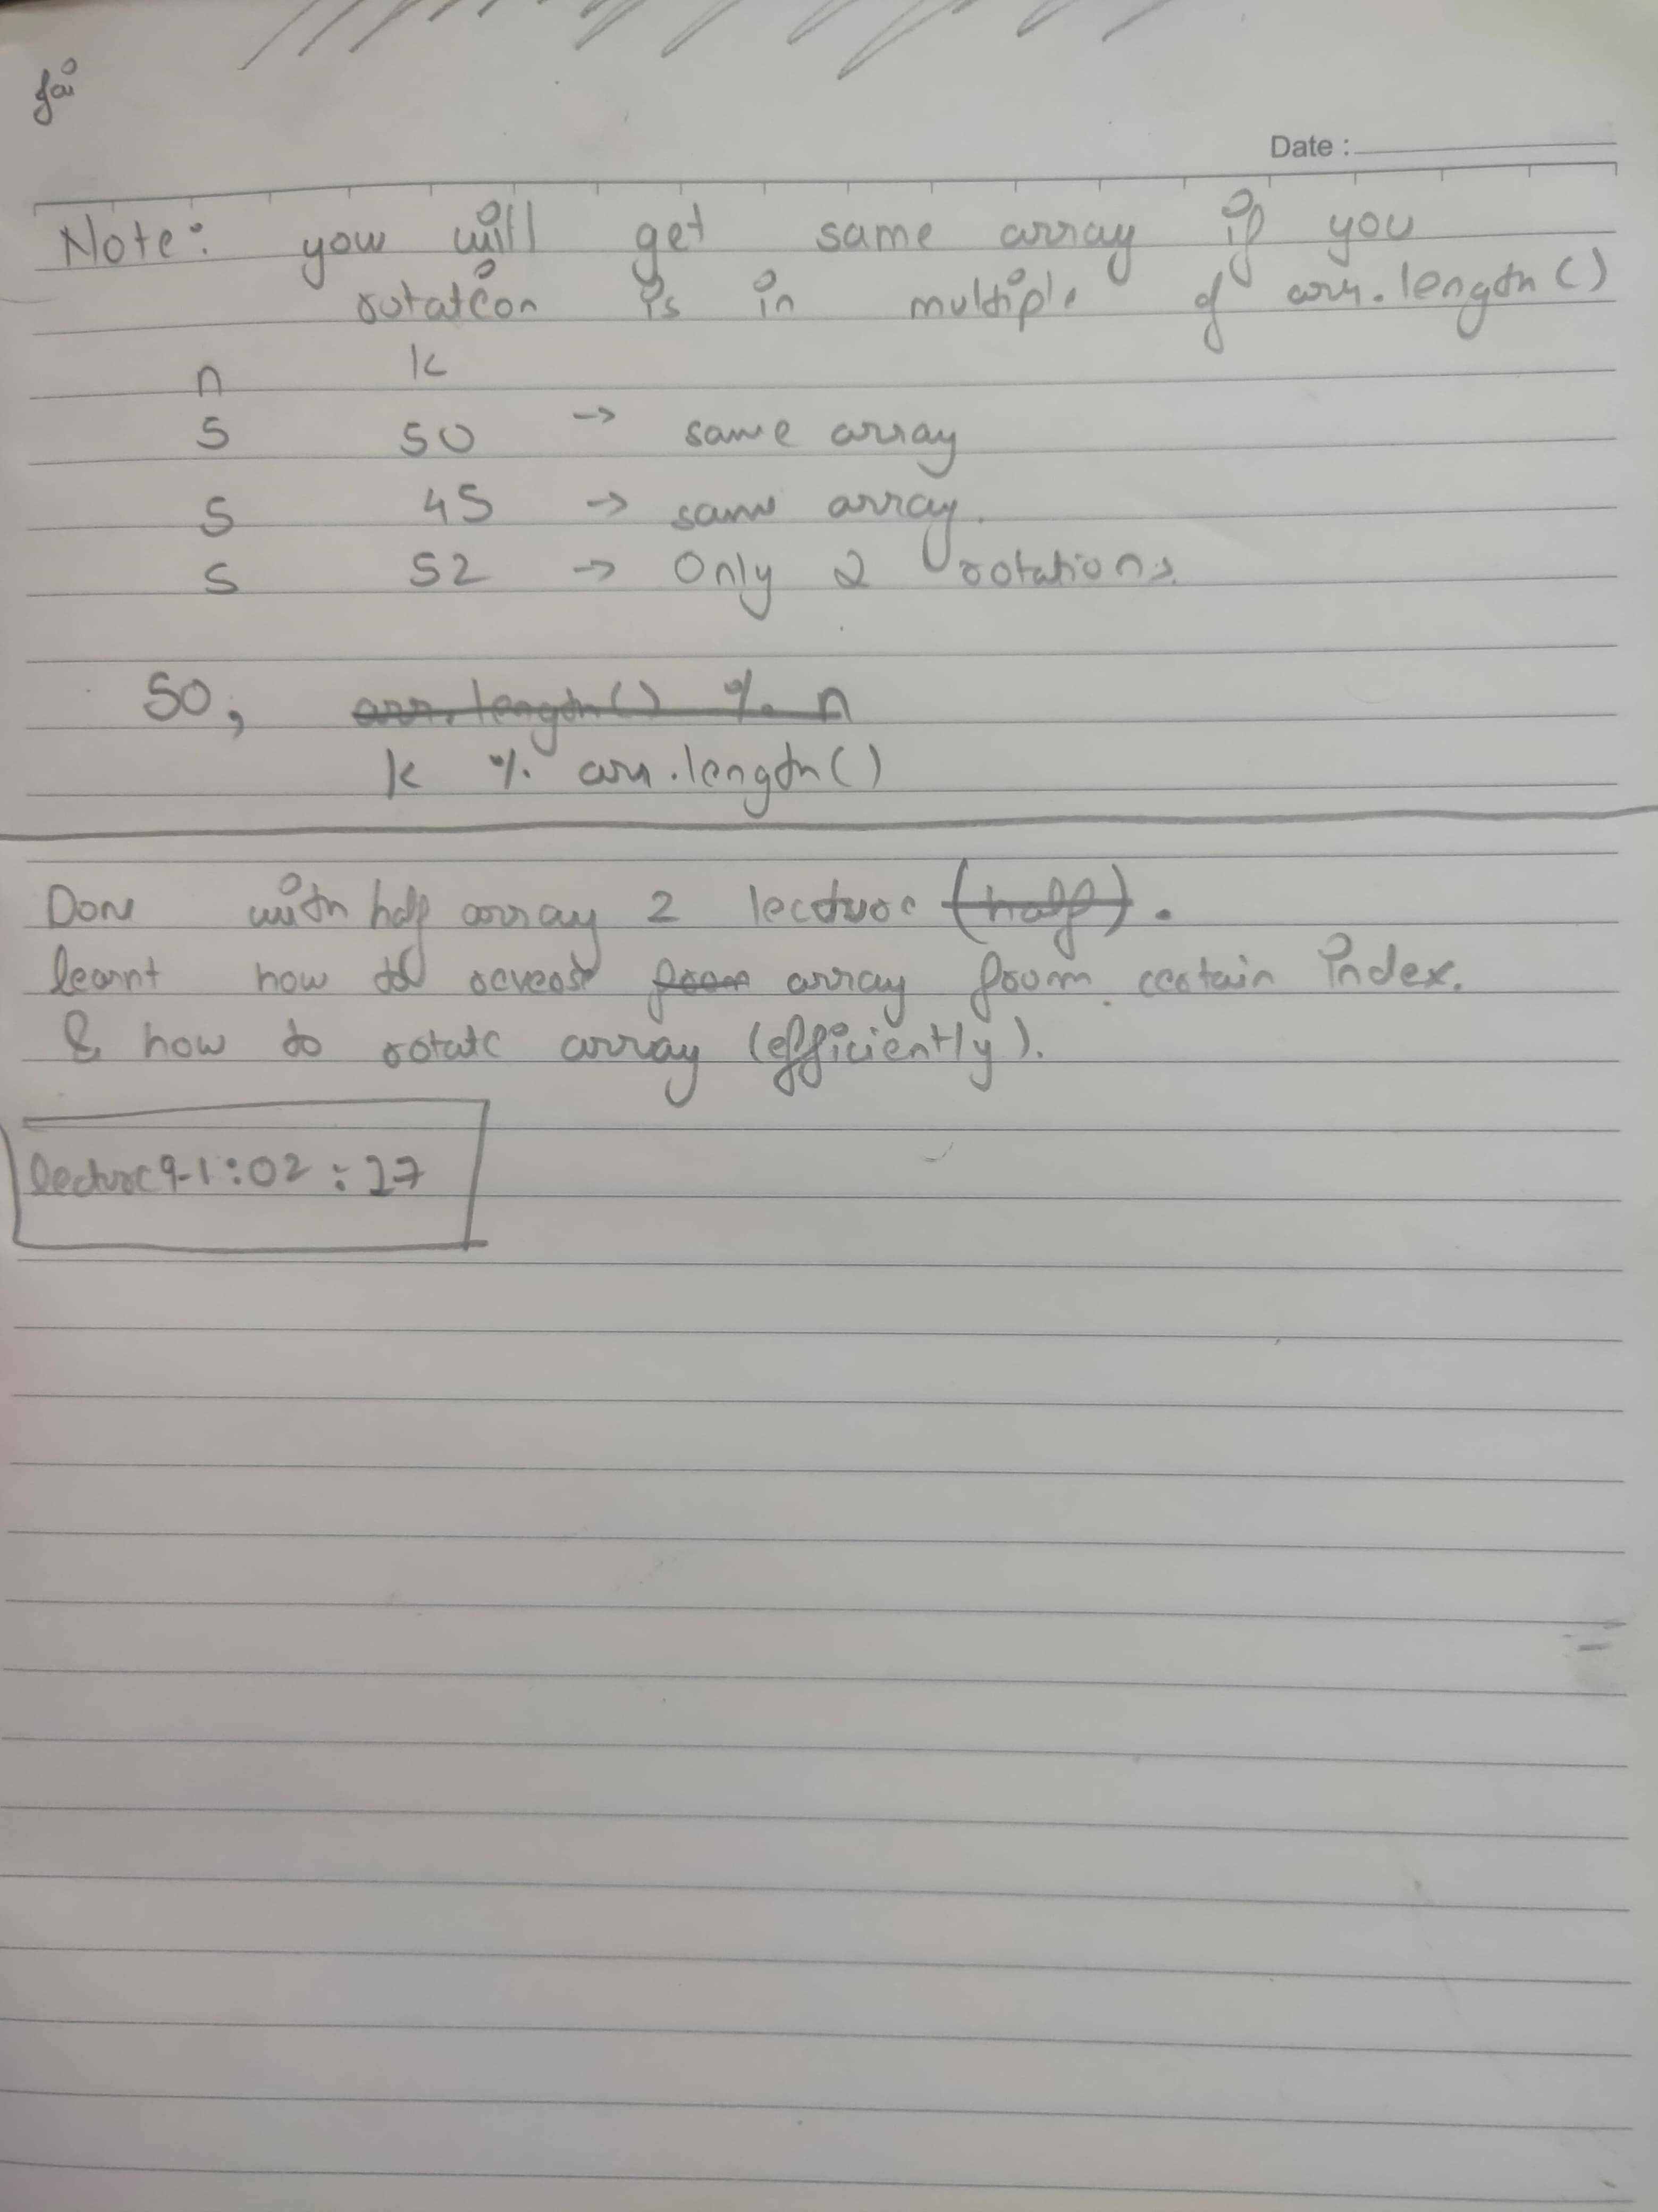 Date :
Note: you will get same array if you
rotation is in multiple of arr.length()
n k
5 50 -> same array
5 45 -> same array.
5 52 -> Only 2 rotations.
SO, arr.length() % n
k % arr.length()
Done with half array 2 lecture (half).
learnt how to reverse from array from certain index.
& how to rotate array (efficiently).
lecture 9-1:02:27